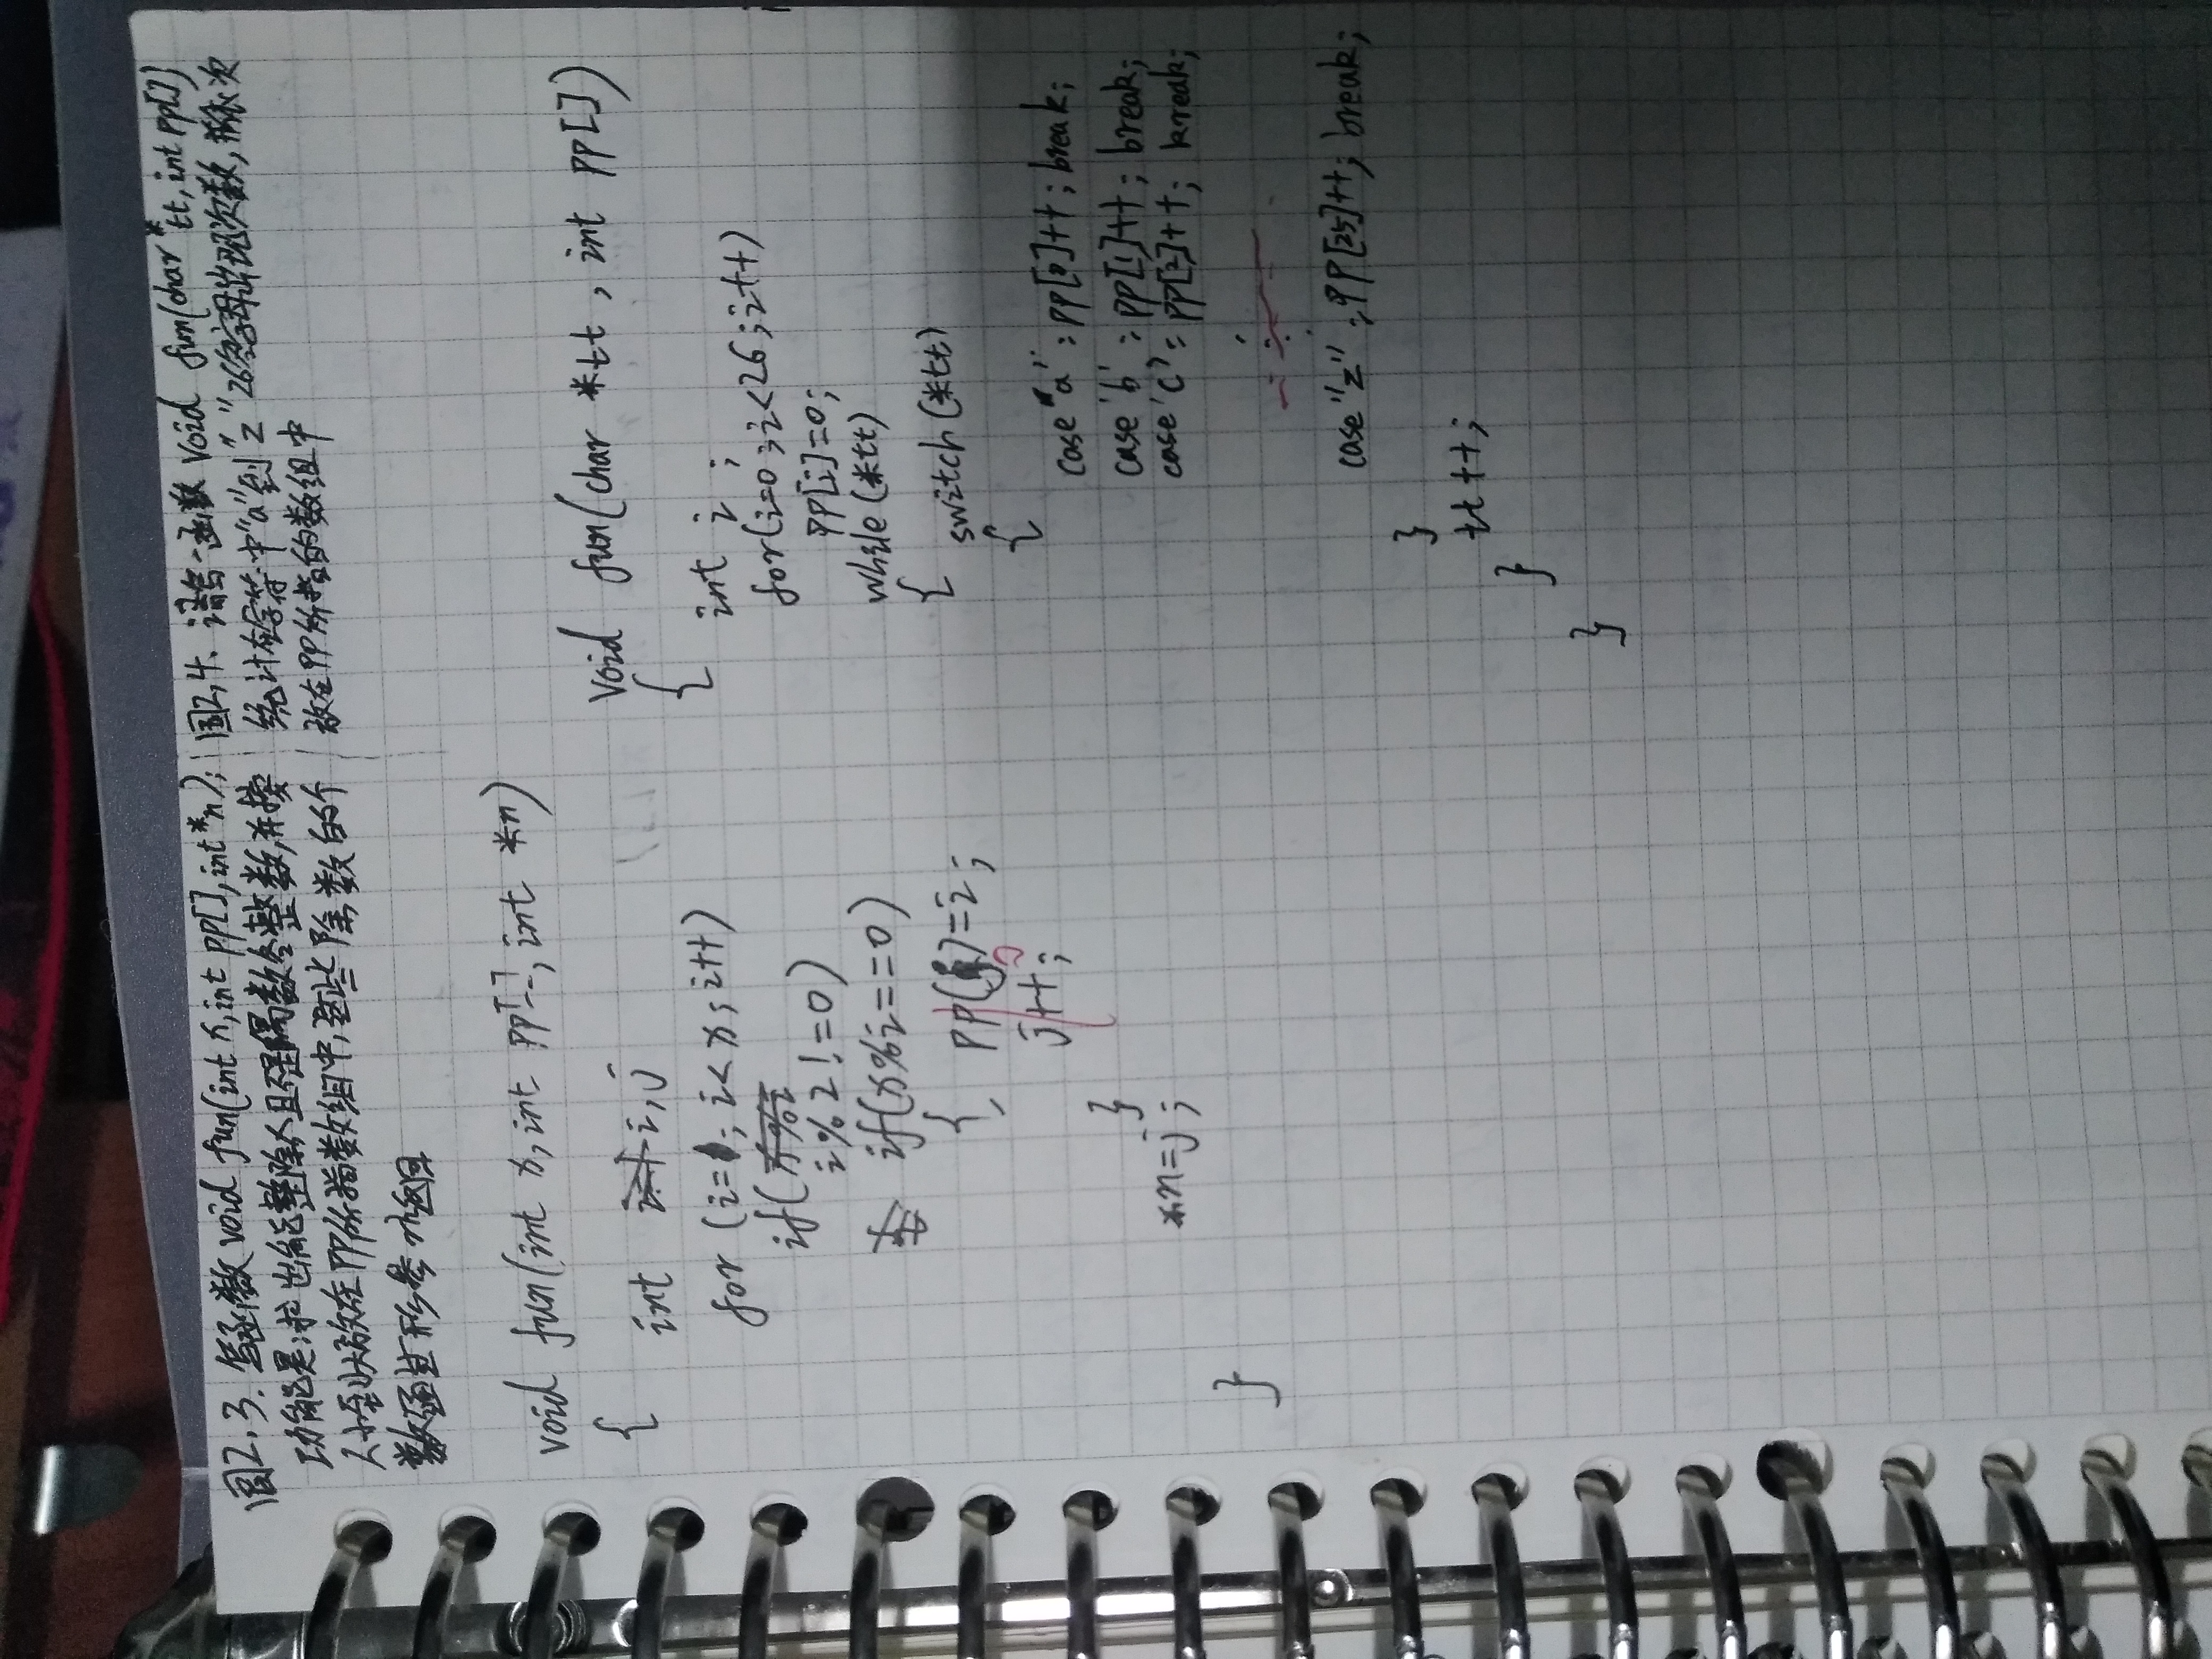 图2.3. 写函数void fun(int x,int pp[],int*n);
功能是:求出能整除x且不是偶数的各整数,并按
从小到大放在PP所指数组中,这些除数的个
数通过形参n返回
void fun(int x,int pp[],int *n)
{
int i,j
for (i=1;i<x;i++)
if(i%2!=0)
if(x%i==0)
{
pp[j]=i;
j++;
}
*n=j;
}
图2,4、请写一函数 void fun(char*tt,int pp[])
统计在字符中"a"到"z"26字母出现次数,依次
放在PP所指的数组中
void fun(char *tt,int pp[])
{
int i;
for(i=0;i<26;i++)
PP[i]=0;
while(*tt)
{
switch(*tt)
{
case 'a':PP[0]++;break;
case 'b':PP[1]++;break;
case 'c':PP[2]++;kreak;
......
case "z":PP[25]++;break;
}
tt++;
}
}